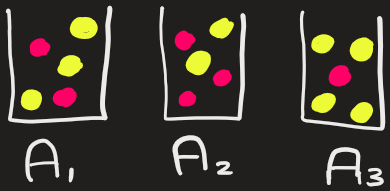 A₁ A₂ A₃